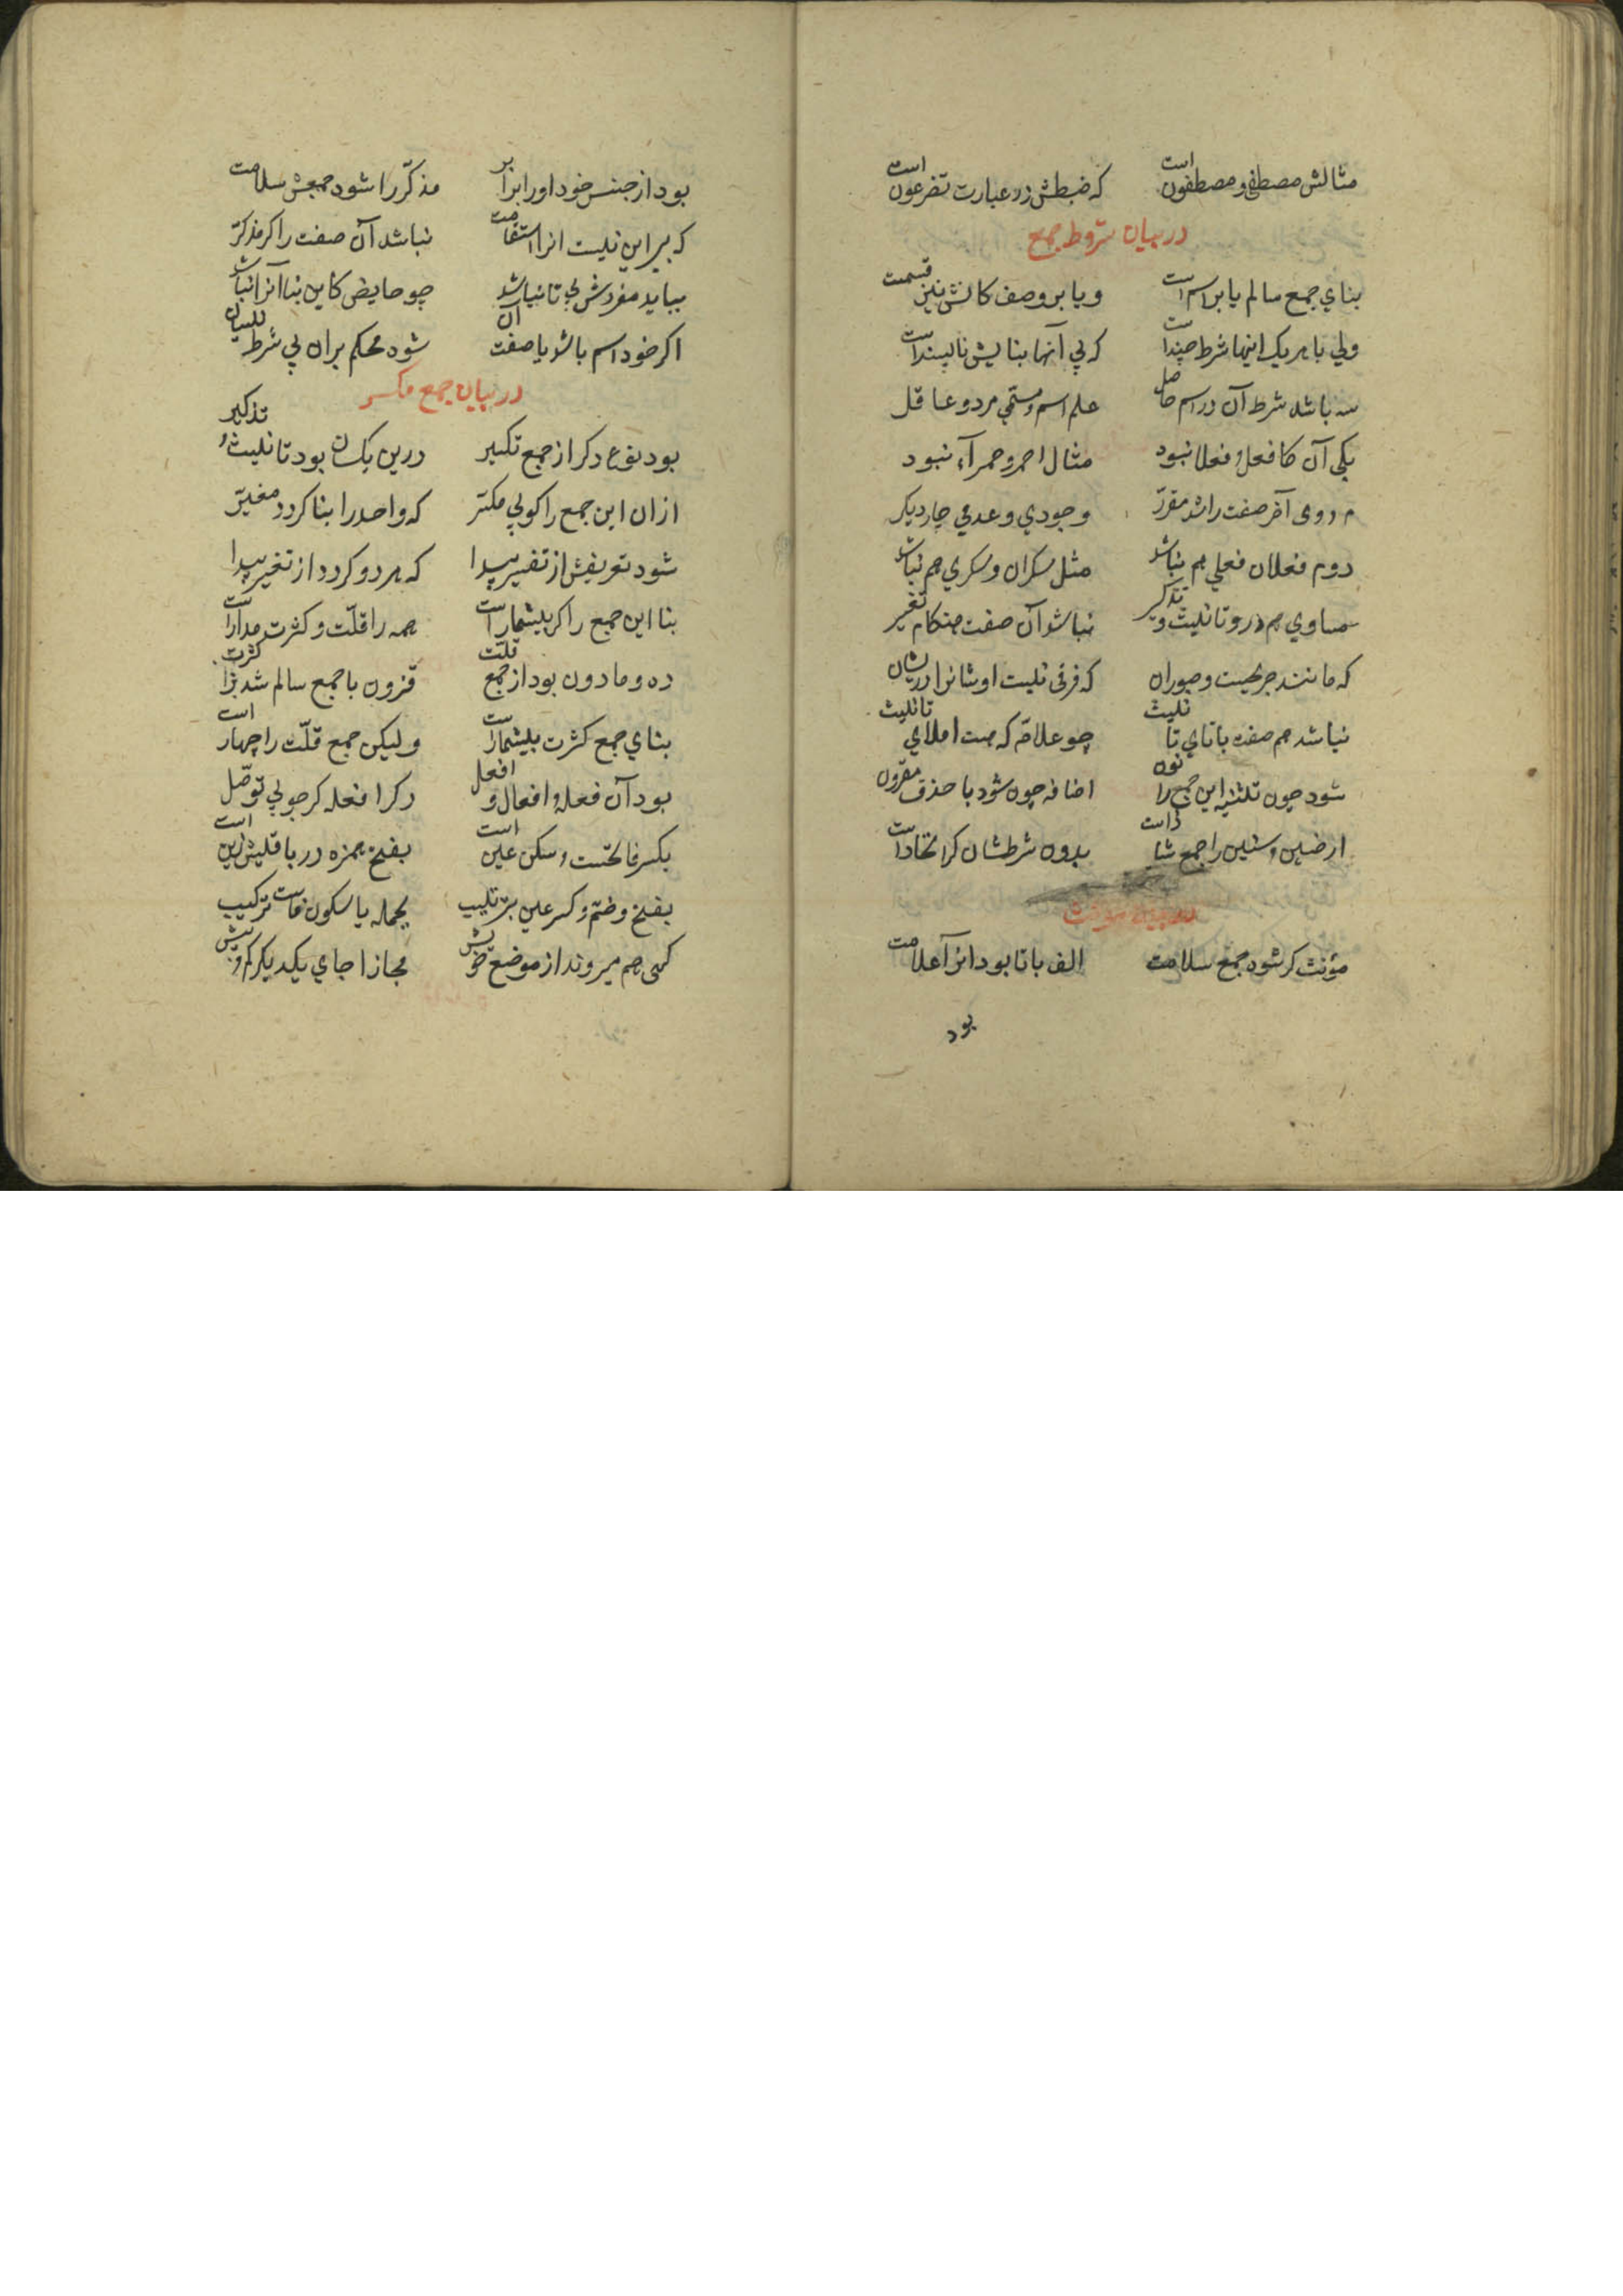 مثالش مصطفی و مصطفون است که ضبطش در عبارت تضرعون است
در بیان شروط جمع
بنای جمع سالم یا بر اسم است و یا بر وصف کانش نیز قسمت
ولی با هر یک اینها شرط چند است که بی آنها بنایش ناپسند است
سه باشد شرط آن در اسم حاصل علم اسم و مسمی مرد و عاقل
یکی آن کافعل و فعلا نبود مثال احمر و حمرآء نبود
دوی آخر صفت را شد مقرر وجودی و عدمی چار دیکر
دوم فعلان فعلی هم نباشد مثل سکران و سکری هم نباشد
مساوی هم درو تانیث و تذکیر نباشد آن صفت هنکام تغیر
که مانند جریحست و صبوران که فرقی نیست اوشانرا در یشان
نباشد هم صفت باتای تانیث چو علامه که هست املای تانیث
شود چون تثنیه این جمع را نون اضافه چون شود با حذف مقرون
ارضین و سنین را جمع شاذ است بدون شرطشان کر اتخاذ است
در بیان مؤنث
مؤنث کر شود جمع سلامت الف باتا بود انرا علامت
بود
بود از جنس خود او را برابر مذکر را شود جمعش سلامت
که بی این نیست انرا استقامت نباشد آن صفت را کر مذکر
بباید مفردش بی تا نباشد چو حایض کاین بنا آنرا نباشد
اکر خود اسم باشد یا صفت آن شود محکم بران بی شرط بنیان
در بیان جمع مکسر
بود نوع دکر از جمع تکسیر درین یکسان بود تانیث و تذکیر
ازان این جمع را کویی مکسر که واحد را بنا کردد مغیر
شود تعریفش از تفسیر پیدا که هر دو کردد از تغیر پیدا
بنا این جمع را کر بیشمار است همه را قلت و کثرت مدار است
ده و مادون بود از جمع قلت فزون با جمع سالم شد کثرت
بنای جمع کثرت بیشمار است ولیکن جمع قلت را چهار است
بود آن فعله و افعال و افعل دکر افعله کر جویی توصل
بکسر فا نخست و سکن عین است بفتح همزه در باقیش زین است
بفتح و ضم و کسر عین بترتیب بجمله یا سکون فاست ترکیب
کهی هم میروند از موضع خویش مجازا جای یکدیکر کم و بیش